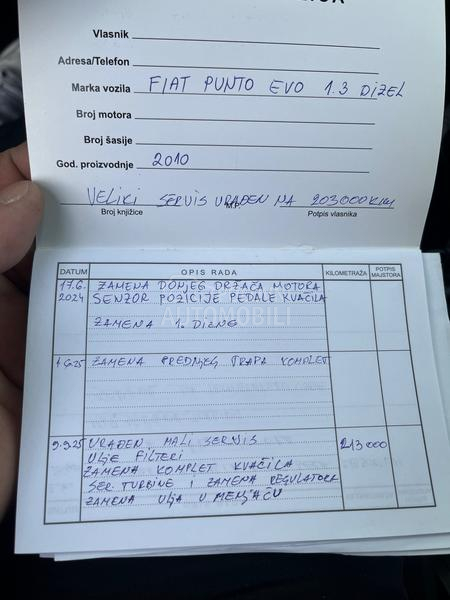 Vlasnik
Adresa/Telefon
Marka vozila FIAT PUNTO EVO 1.3 DIZEL
Broj motora
Broj šasije
God. proizvodnje 2010
VELIKI SERVIS URAĐEN NA 203000km
Broj knjižice M.P. Potpis vlasnika
DATUM OPIS RADA KILOMETRAŽA POTPIS MAJSTORA
17.6. 2024 ZAMENA DONJEG DRŽAČA MOTORA
SENZOR POZICIJE PEDALE KVAČILA
AUTOMOBILI
ZAMENA 1. DIZNE
ZAMENA PREDNJEG TRAPA KOMPLET
9.9.25 URAĐEN MALI SERVIS 213000
ULJE FILTERI
ZAMENA KOMPLET KVAČILA
SER. TURBINE I ZAMENA REGULATORA
ZAMENA ULJA U MENJAČU